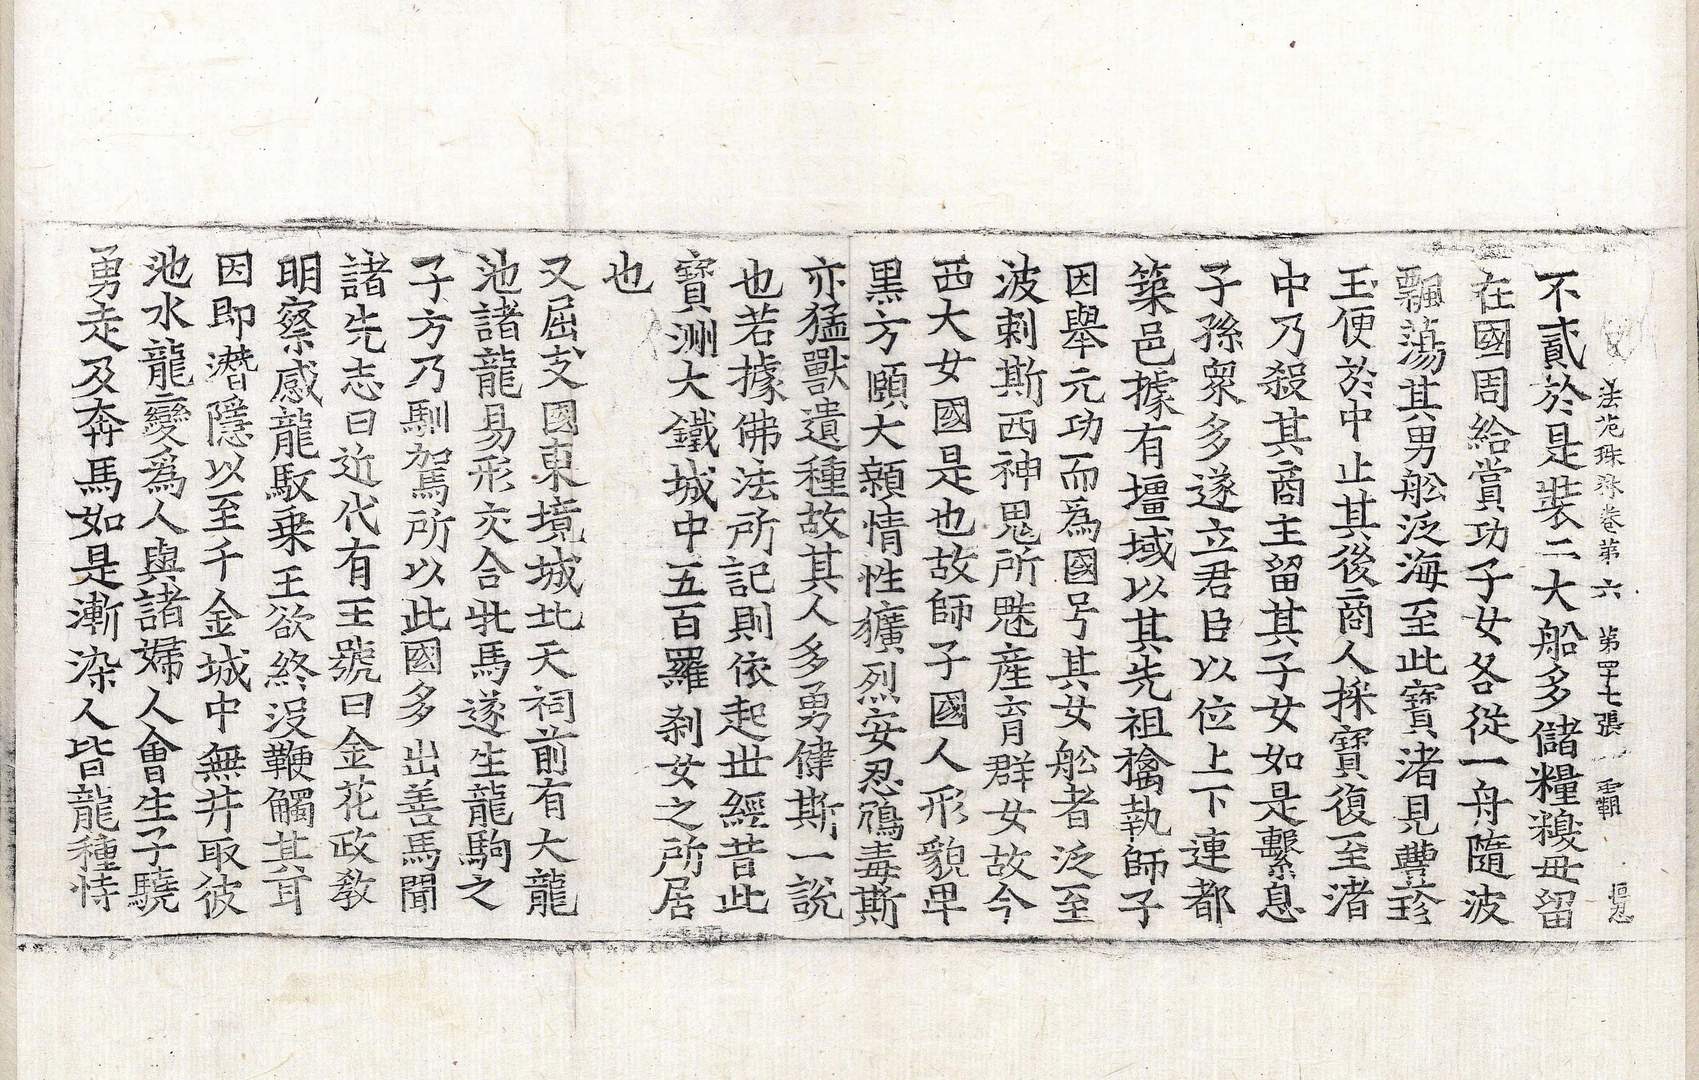 法苑珠林卷第六 第四十七張 覊
不貳於是裝二大船多儲糧糗母留
在國周給賞功子女各從一舟隨波
飄蕩其男舩泛海至此寶渚見豐珍
玉便於中止其後商人採寶復至渚
中乃殺其商主留其子女如是繫息
子孫衆多遂立君臣以位上下連都
築邑據有壃域以其先祖擒執師子
因舉元功而爲國号其女舩者泛至
波剌斯西神鬼所魅產育群女故今
西大女國是也故師子國人形貌卑
黒方頤大顙情性獷烈安忍鴆毒斯
亦猛獸遺種故其人多勇健斯一說
也若據佛法所記則依起世經昔此
寶洲大鐵城中五百羅刹女之所居
也
又屈支國東境城北天祠前有大龍
池諸龍易形交合牝馬遂生龍駒之
子方乃馴駕所以此國多出善馬聞
諸先志曰近代有王號曰金花政教
明察感龍馭乗王欲終沒鞭觸其耳
因即潛隱以至于今城中無井取彼
池水龍變爲人與諸婦人會生子驍
勇走及奔馬如是漸染人皆龍種恃